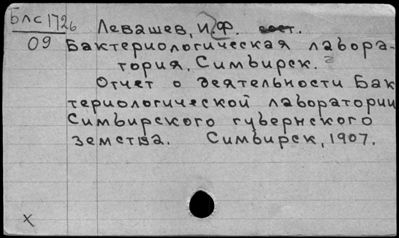 Блс 1726
09
Левашев, И.Ф. сост.
Бактериологическая лабора-
тория. Симбирск.
Отчет о деятельности Бак
териологической лаборатории
Симбирского губернского
земства. Симбирск, 1907.
x